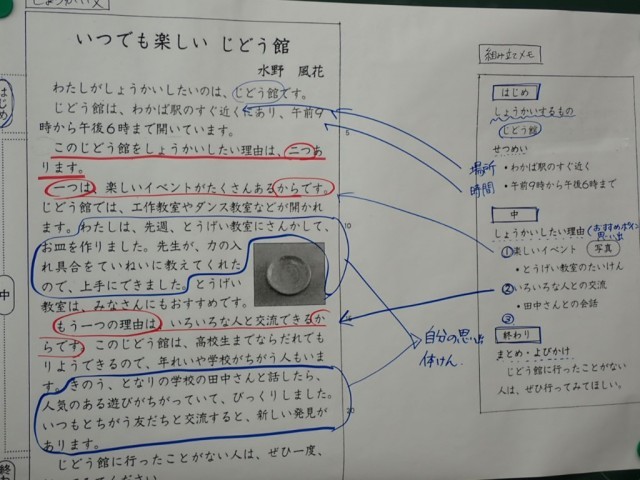 しょうかい文
いつでも楽しい じどう館
水野 風花
わたしがしょうかいしたいのは、じどう館です。
じどう館は、わかば駅のすぐ近くにあり、午前9
時から午後6時まで開いています。
このじどう館をしょうかいしたい理由は、二つあ
ります。
一つは、楽しいイベントがたくさんあるからです。
じどう館では、工作教室やダンス教室などが開かれ
ます。わたしは、先週、とうげい教室にさんかして、
お皿を作りました。先生が、力の入
れ具合をていねいに教えてくれた
ので、上手にできました。とうげい
教室は、みなさんにもおすすめです。
もう一つの理由は、いろいろな人と交流できるか
らです。このじどう館は、高校生までならだれでも
りようできるので、年れいや学校がちがう人もいま
す。きのう、となりの学校の田中さんと話したら、
人気のある遊びがちがっていて、びっくりしました。
いつもとちがう友だちと交流すると、新しい発見が
あります。
じどう館に行ったことがない人は、ぜひ一度、
5
10
20
はじめ
中
終わ
自分の思い出
体けん
組み立てメモ
はじめ
しょうかいするもの
じどう館
せつめい
場所 ・わかば駅のすぐ近く
時間 ・午前9時から午後6時まで
中
しょうかいしたい理由(おすすめポイント
思い出
①楽しいイベント 写真
・とうげい教室のたいけん
②いろいろな人との交流
・田中さんとの会話
③
終わり
まとめ・よびかけ
じどう館に行ったことがない
人は、ぜひ行ってみてほしい。